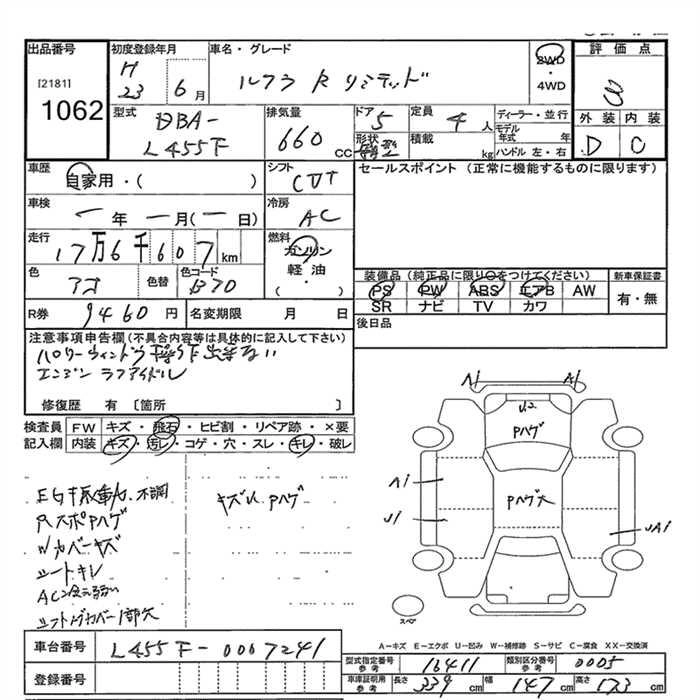 出品番号 初度登録年月 車名・グレード 2WD・4WD 評価点
[2181]
1062
H 23 6月
ルクラ R リミテッド
型式 DBA-L455F
排気量 660 CC
ドア 5
形状
定員 4人
積載 kg
ディーラー・並行
モデル年式 年
ハンドル 左・右
外装 内装
D C
車歴 自家用・( )
シフト CVT
セールスポイント (正常に機能するものに限ります)
車検 年 月( 日)
冷房 AC
走行 17万6千607km
燃料 ガソリン 軽油・( )
色 アオ 色替 色コード B70
装備品 (純正品に限り○をつけてください) 新車保証書
PS PW ABS エアB AW 有・無
SR ナビ TV カワ
R券 9460円 名変期限 月 日
後日品
注意事項申告欄(不具合内容等は具体的に記入して下さい)
エンジン ラフアイドル
修復歴 有〔箇所 〕
検査員記入欄 FW キズ・飛石・ヒビ割・リペア跡・×要
内装 キズ・汚レ・コゲ・穴・スレ・キレ・破レ
EG振動、不調
キズU Pハゲ
RスポPハゲ
Wカバーキズ
シートキレ
シフトノブカバー1部欠
A1 A1
U2
Pハゲ
A1
Pハゲ大
U1
UA1
スペア
車台番号 L455F-0007241
登録番号
A-キズ E-エクボ U-凹み W-補修跡 S-サビ C-腐食 XX-交換済
型式指定番号 参考 16411 類別区分番号 参考 0005
車庫証明用 参考 長さ 339cm 幅 147cm 高さ 153cm